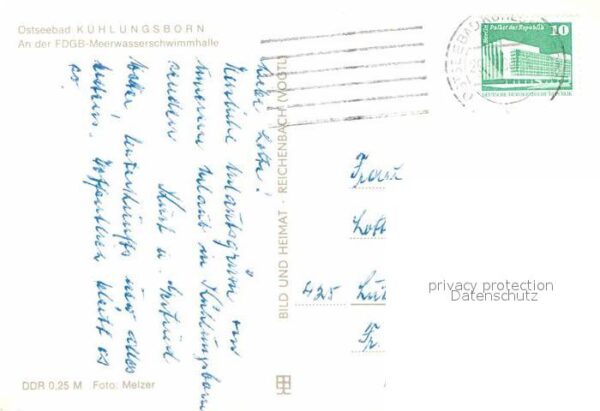 Ostseebad KÜHLUNGSBORN
An der FDGB-Meerwasserschwimmhalle
Liebe Lotte!
Herzliche Urlaubsgrüße von
unserem Urlaub in Kühlungsborn
senden Kurt u.
Wetter, Unterkunft und alles
bestens. Hoffentlich bleibt es
so.
BILD UND HEIMAT · REICHENBACH (VOGTL)
Berlin, Palast der Republik
10
DEUTSCHE DEMOKRATISCHE REPUBLIK
Frau
Lott
425
Fr
privacy protection
Datenschutz
DDR 0,25 M Foto: Melzer